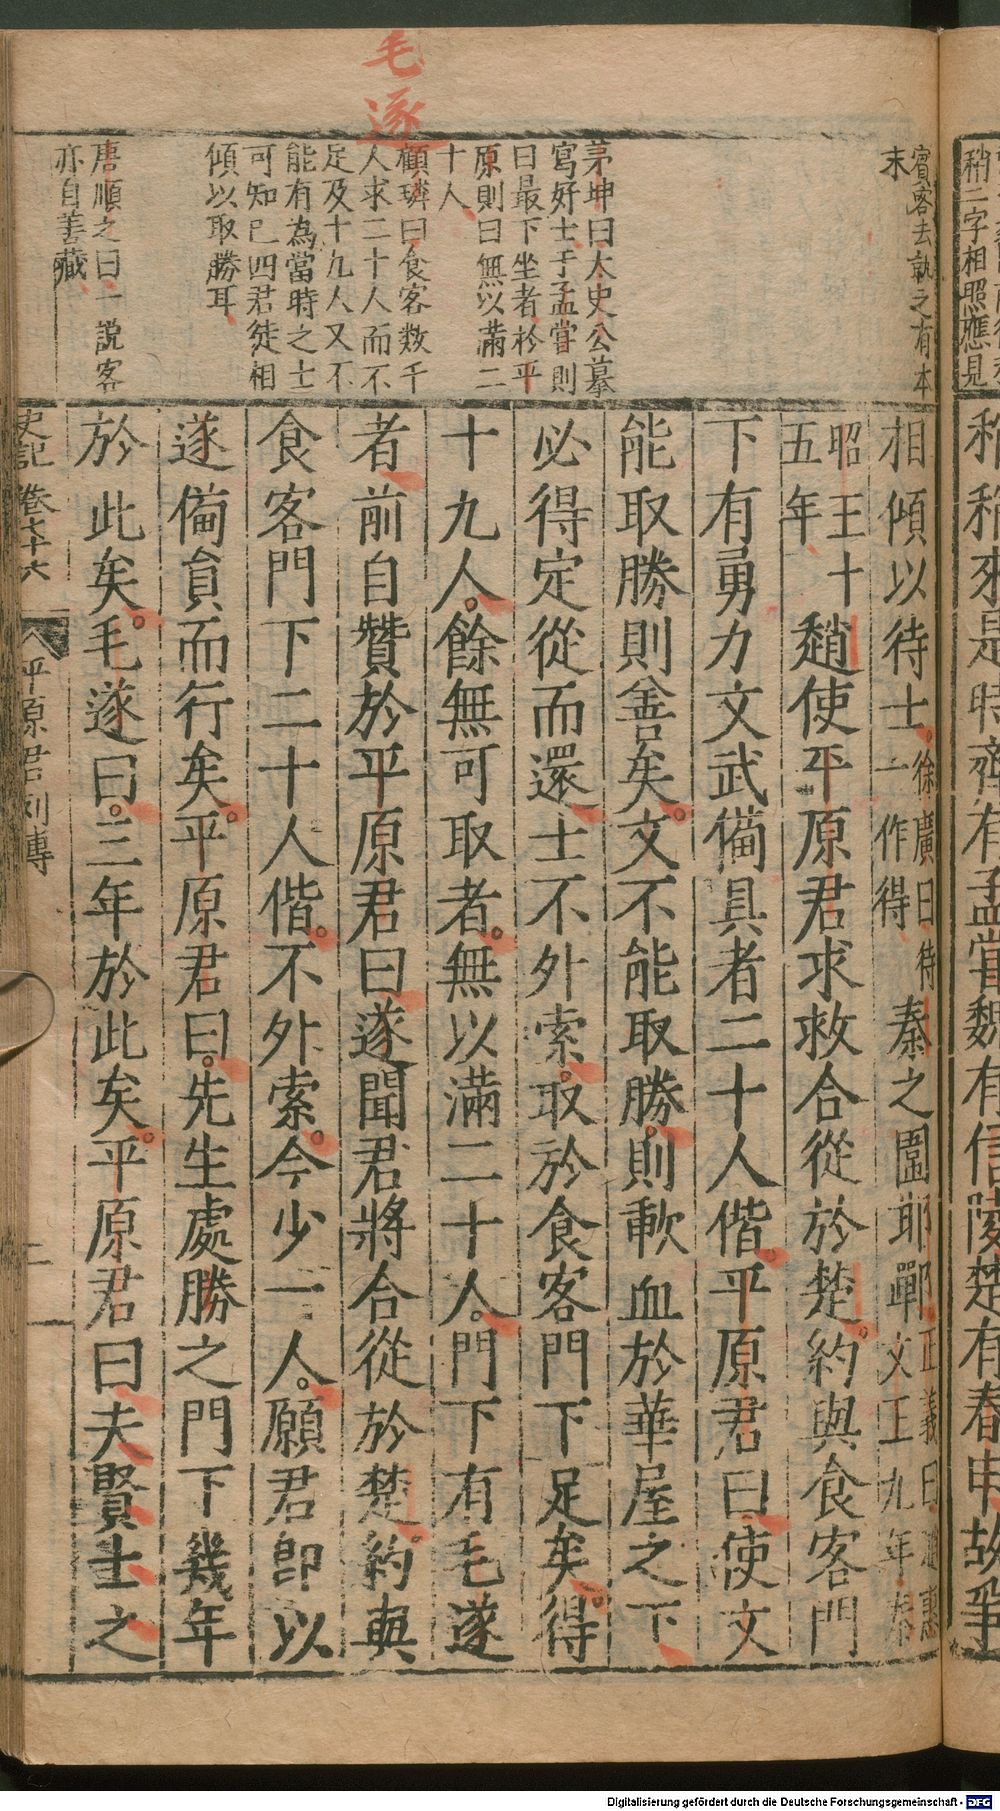 毛遂
賓客去就之有本
末
茅坤曰太史公摹
寫好士于孟嘗則
曰最下坐者於平
原則曰無以滿二
十人
顧璘曰食客数千
人求二十人而不
足及十九人又不
能有為當時之士
可知已四君徒相
傾以取勝耳
唐順之曰一説客
亦自善藏
稍二字相照應見
來是時齊有孟嘗魏有信陵楚有春申故爭
相傾以待士徐廣曰待一作得秦之圍邯鄲正義曰趙惠文王九年
昭王十五年趙使平原君求救合從於楚約與食客門
下有勇力文武備具者二十人偕平原君曰使文
能取勝則善矣文不能取勝則歃血於華屋之下
必得定從而還士不外索取於食客門下足矣得
十九人餘無可取者無以滿二十人門下有毛遂
者前自贊於平原君曰遂聞君將合從於楚約與
食客門下二十人偕不外索今少一人願君即以
遂備員而行矣平原君曰先生處勝之門下幾年
於此矣毛遂曰三年於此矣平原君曰夫賢士之
史記 卷七十六 平原君列傳 二
Digitalisierung gefördert durch die Deutsche Forschungsgemeinschaft - DFG